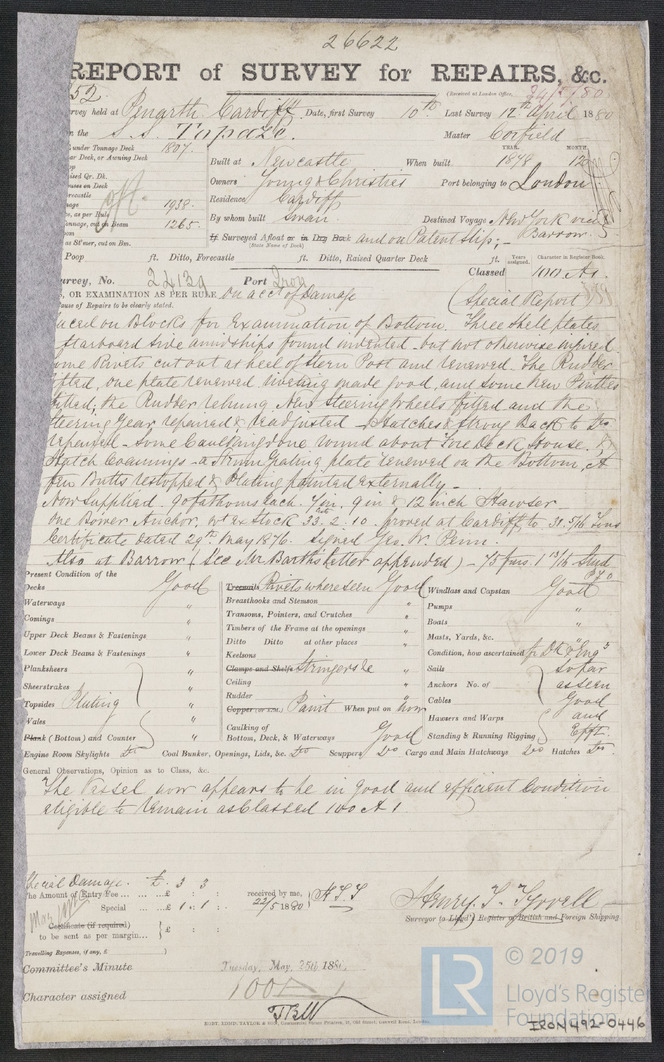 26622
REPORT of SURVEY for REPAIRS, &c.
52
(Received at London Office,
rvey held at Penarth Cardiff Date, first Survey 10th Last Survey 12th April 1880
n the S.S. Topaze. Master Corfield
under Tonnage Deck 1807.
ar Deck, or Awning Deck
Built at Newcastle When built YEAR. 1878 MONTH. 12
Owners Young & Christies Port belonging to London
Residence Cardiff
1938.
1265.
By whom built Swan Destined Voyage New York via Barrow.
If Surveyed Afloat or in Dry Dock and on Patent Slip;
(State Name of Dock)
Poop ft. Ditto, Forecastle ft. Ditto, Raised Quarter Deck ft.
Years assigned. Character in Register Book.
urvey, No. 22139 Port Iron Classed 100 A1
, OR EXAMINATION AS PER RULE On acct of Damage (Special Report
ause of Repairs to be clearly stated.
aced on Blocks for Examination of Bottom. Three Shell plates
Starboard Side amidships found indented - but not otherwise injured
ome Rivets cut out at heel of Stern Post and renewed. The Rudder
ifted, one plate renewed riveting made good, and some new Pintles
itted, the Rudder rehung New Steering Wheels fitted and the
teering Gear repaired & readjusted - Hatches & Strong Back to Do
repaired - Some Caulking done round about Fore Deck House.
Hatch Coamings - a plate renewed on the Bottom, A
few Butts restopped & Plating painted externally -
Now Supplied. 90 fathoms each. 7in. 9 in & 12 inch Hawser
One Bower Anchor, wt ex Stock 33.2.10. proved at Cardiff, to 31 5/16 Tons
Certificate dated 29th May 1876. Signed Geo. W. Penn.
Also at Barrow (See Mr Barth's letter appended) - 75 fms. 1 13/16 Stud
PTO
Present Condition of the
Decks Good
Waterways "
Comings "
Upper Deck Beams & Fastenings "
Lower Deck Beams & Fastenings "
Planksheers
Sheerstrakes
Topsides Plating "
Wales
Plank (Bottom) and Counter "
Treenails Rivets where seen Good
Breasthooks and Stemson "
Transoms, Pointers, and Crutches "
Timbers of the Frame at the openings "
Ditto Ditto at other places "
Keelsons "
Clamps and Shelfs Stringers &c "
Ceiling "
Rudder "
Copper Paint When put on Now
Caulking of
Bottom, Deck, & Waterways Good
Windlass and Capstan Good
Pumps "
Boats "
Masts, Yards, &c. "
Condition, how ascertained
Sails so far
Anchors No. of as seen
Cables Good
Hawsers and Warps and
Standing & Running Rigging Efft.
Engine Room Skylights Do Coal Bunker, Openings, Lids, &c. Do Scuppers Do Cargo and Main Hatchways Do Hatches Do
General Observations, Opinion as to Class, &c.
The Vessel now appears to be in good and efficient Condition
eligible to remain as Classed 100 A 1
Special Damage. £. 3 3
The Amount of Entry Fee ... ...£ : :
Special ... ...£ 1 : 1 :
received by me,
22/5 1880
Certificate (if required)
to be sent as per margin...
£ : :
Travelling Expenses, if any, £ )
Henry T. Tyrrell
Surveyor to Lloyd's Register of British and Foreign Shipping
Committee's Minute Tuesday, May 25th 1880.
Character assigned 100 A 1
© 2019
LR
Lloyd's Register
Foundation
IRON492-0446